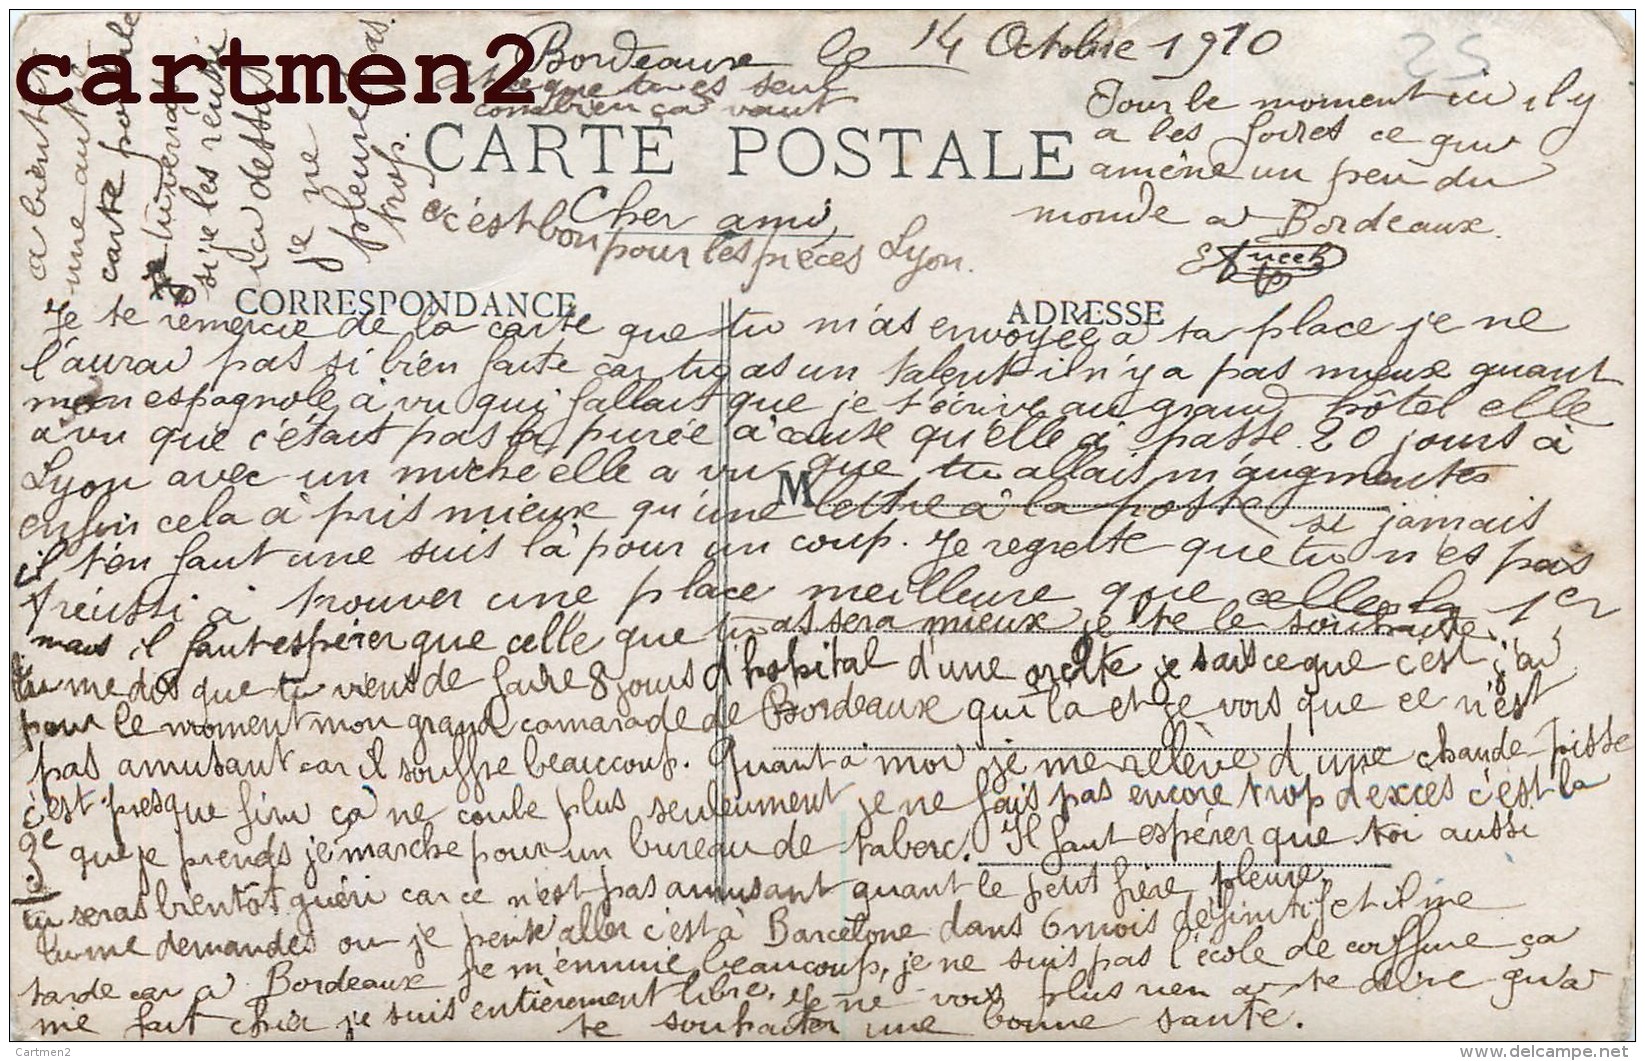 cartmen2
Bordeaux le 14 Octobre 1910
que tu es seul
combien ça vaut
CARTE POSTALE
Pour le moment ici il y
a les foires ce qui
amène un peu du
monde a Bordeaux.
Cher ami,
c'est bon pour les pièces Lyon.
a bientôt
une autre
carte postale
tu verras
si je les réussi
la dessus
je ne
pleure pas
trop.
CORRESPONDANCE
ADRESSE
M
Je te remercie de la carte que tu m'as envoyée a ta place je ne
l'aurai pas si bien faite car tu as un talent il n'y a pas mieux quant
mon espagnole à vu qui fallait que je t'écrive au grand hôtel elle
a vu que c'était pas la purée à cause qu'elle à passé 20 jours à
Lyon avec un miché elle a vu que tu allais m'augmenter
enfin cela à pris mieux qu'une lettre à la poste si jamais
il t'en faut une suis là pour un coup. Je regrette que tu n'es pas
réussi à trouver une place meilleure que celle la 1er
mais il faut espérer que celle que tu as sera mieux je te le souhaite.
tu me dis que tu viens de faire 8 jours d'hopital d'une orcite je sais ce que c'est j'ai
pour le moment mon grand camarade de Bordeaux qui la et je vois que ce n'est
pas amusant car il souffre beaucoup. Quant à moi je me relève d'une chaude-pisse
c'est presque fini ça ne coule plus seulement je ne fais pas encore trop d'excès c'est la
3e que je prends je marche pour un bureau de tabac. Il faut espérer que toi aussi
tu seras bientôt guéri car ce n'est pas amusant quant le petit frère pleure.
tu me demandes ou je pense aller c'est à Barcelone dans 6 mois définitif et il me
tarde car a Bordeaux je m'ennuie beaucoup, je ne suis pas l'école de coiffure ça
me fait chier je suis entièrement libre. Je ne vois plus rien a te dire qu'a
te souhaiter une bonne santé.
Cartmen2
www.delcampe.net